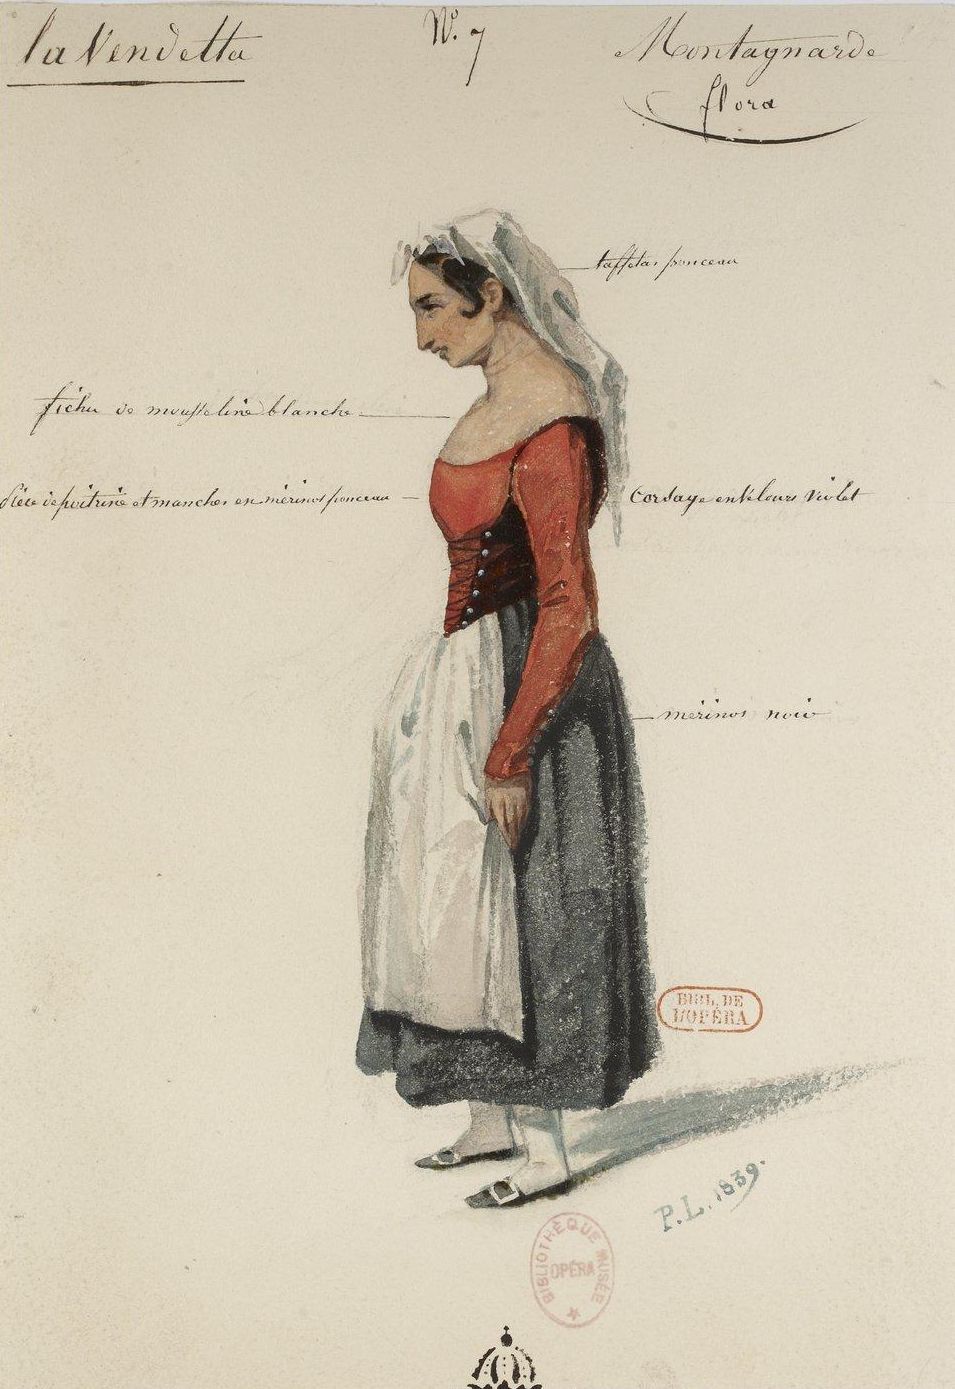 la Vendetta
N°. 7
Montagnarde
flora
taffetas ponceau
fichu de mousseline blanche
Pièce de poitrine et manches en mérinos ponceau
Corsage en Velours Violet
mérinos noir
BIBL. DE
L'OPÉRA
P. L. 1839.
BIBLIOTHÈQUE MUSÉE
OPÉRA